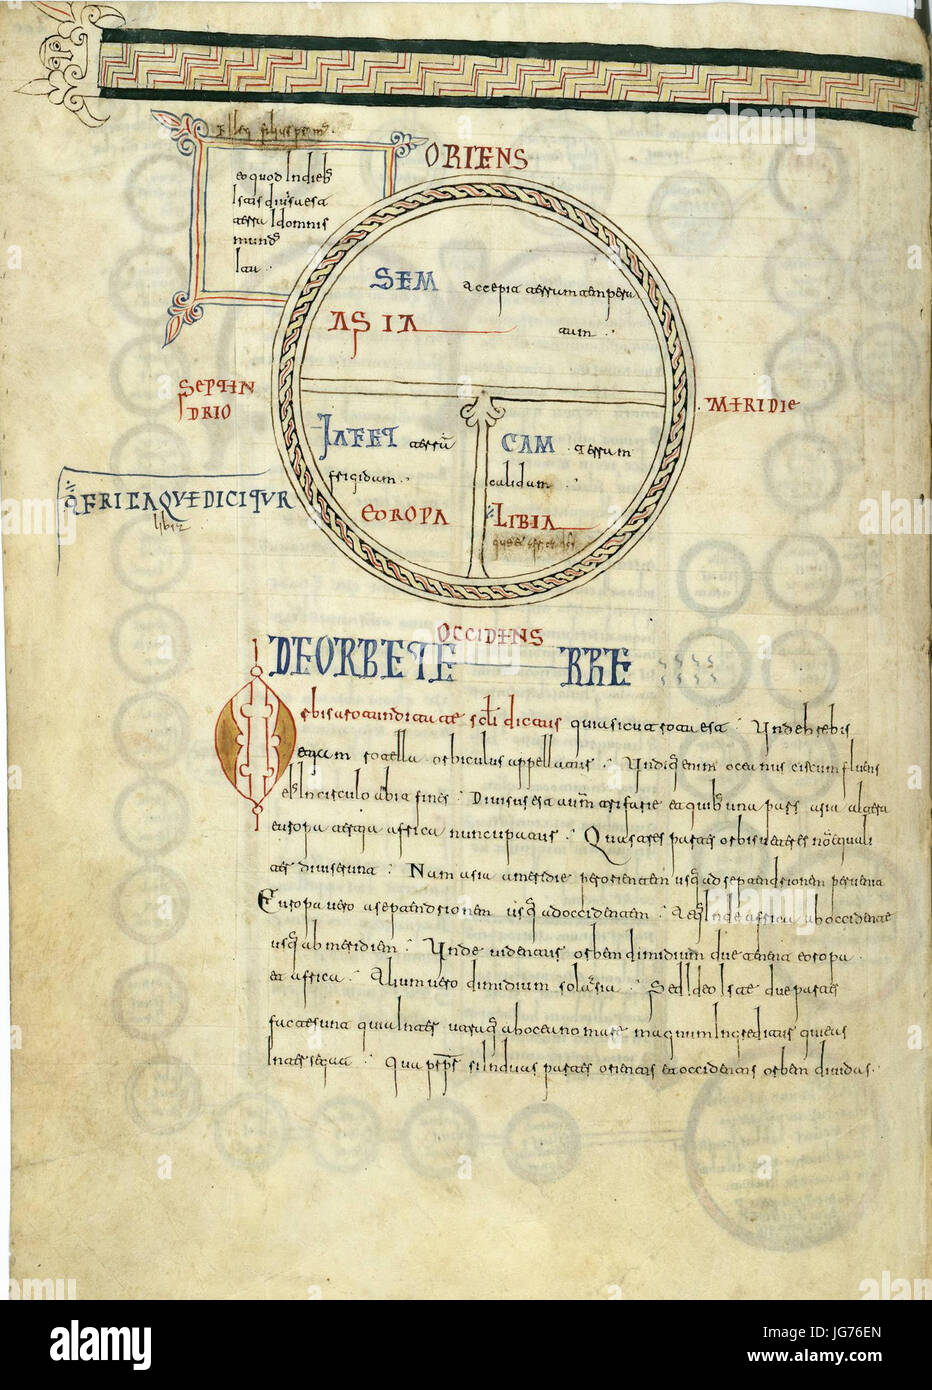 ORIENS
eo quod Indieb;
mund;
SEM accepit terrum temperatum
ASIA
SEPTEN
DRIO
MERIDIE
IAFET terrū
frigidum
EOROPA
CAM terrum
calidum
LIBIA
AFRICA QVE DICITVR
libiz
OCCIDENS
DE ORBE TERRE
Orbis a rotunditate scłi dictus quia sicut rota est Unde brebis
etiam rotella orbiculus appellatur Undiq; enim oceanus circumfluens
eius In circulo ambit fines Divisus est autm trifarie e quibus una pars asia altera
europa tertia affrica nuncupatur Quas tres partes orbis veteres non equali
ter diviserunt Nam asia a meridie per orientem usq; ad septemtrionem pervenit
Europa vero a septemtrionem usq; ad occidentem Atq; Inde affrica ab occidente
usq; ab meridiem Unde videntur orbem dimidium due tenere eoropa
et affrica Alium vero dimidium sola asia Sed Ideo Iste due partes
facte sunt quia Inter utrumq; ab oceano mare magnum Ingreditur qui eas
Intersecat Quapropter si In duas partes orientis et occidentis orbem dividas
alamy
a alamy stock photo
JG76EN
www.alamy.com